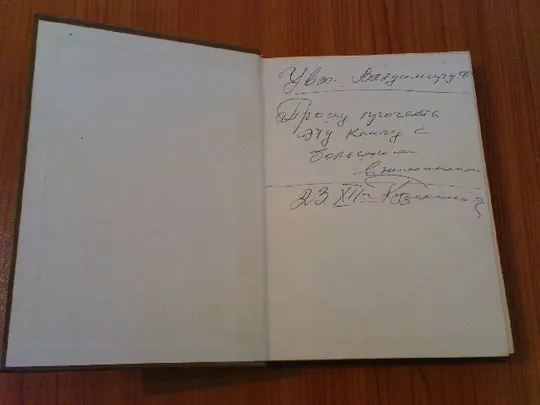 Ув. Владимиру
Прошу прочесть
эту книгу с
большим
вниманием
23. XII